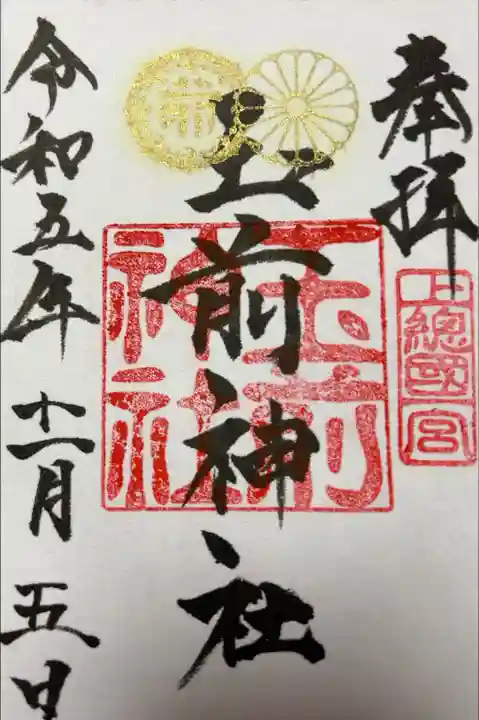 奉拜
上總國一宮
玉前神社
玉前神社
令和五年十一月五日